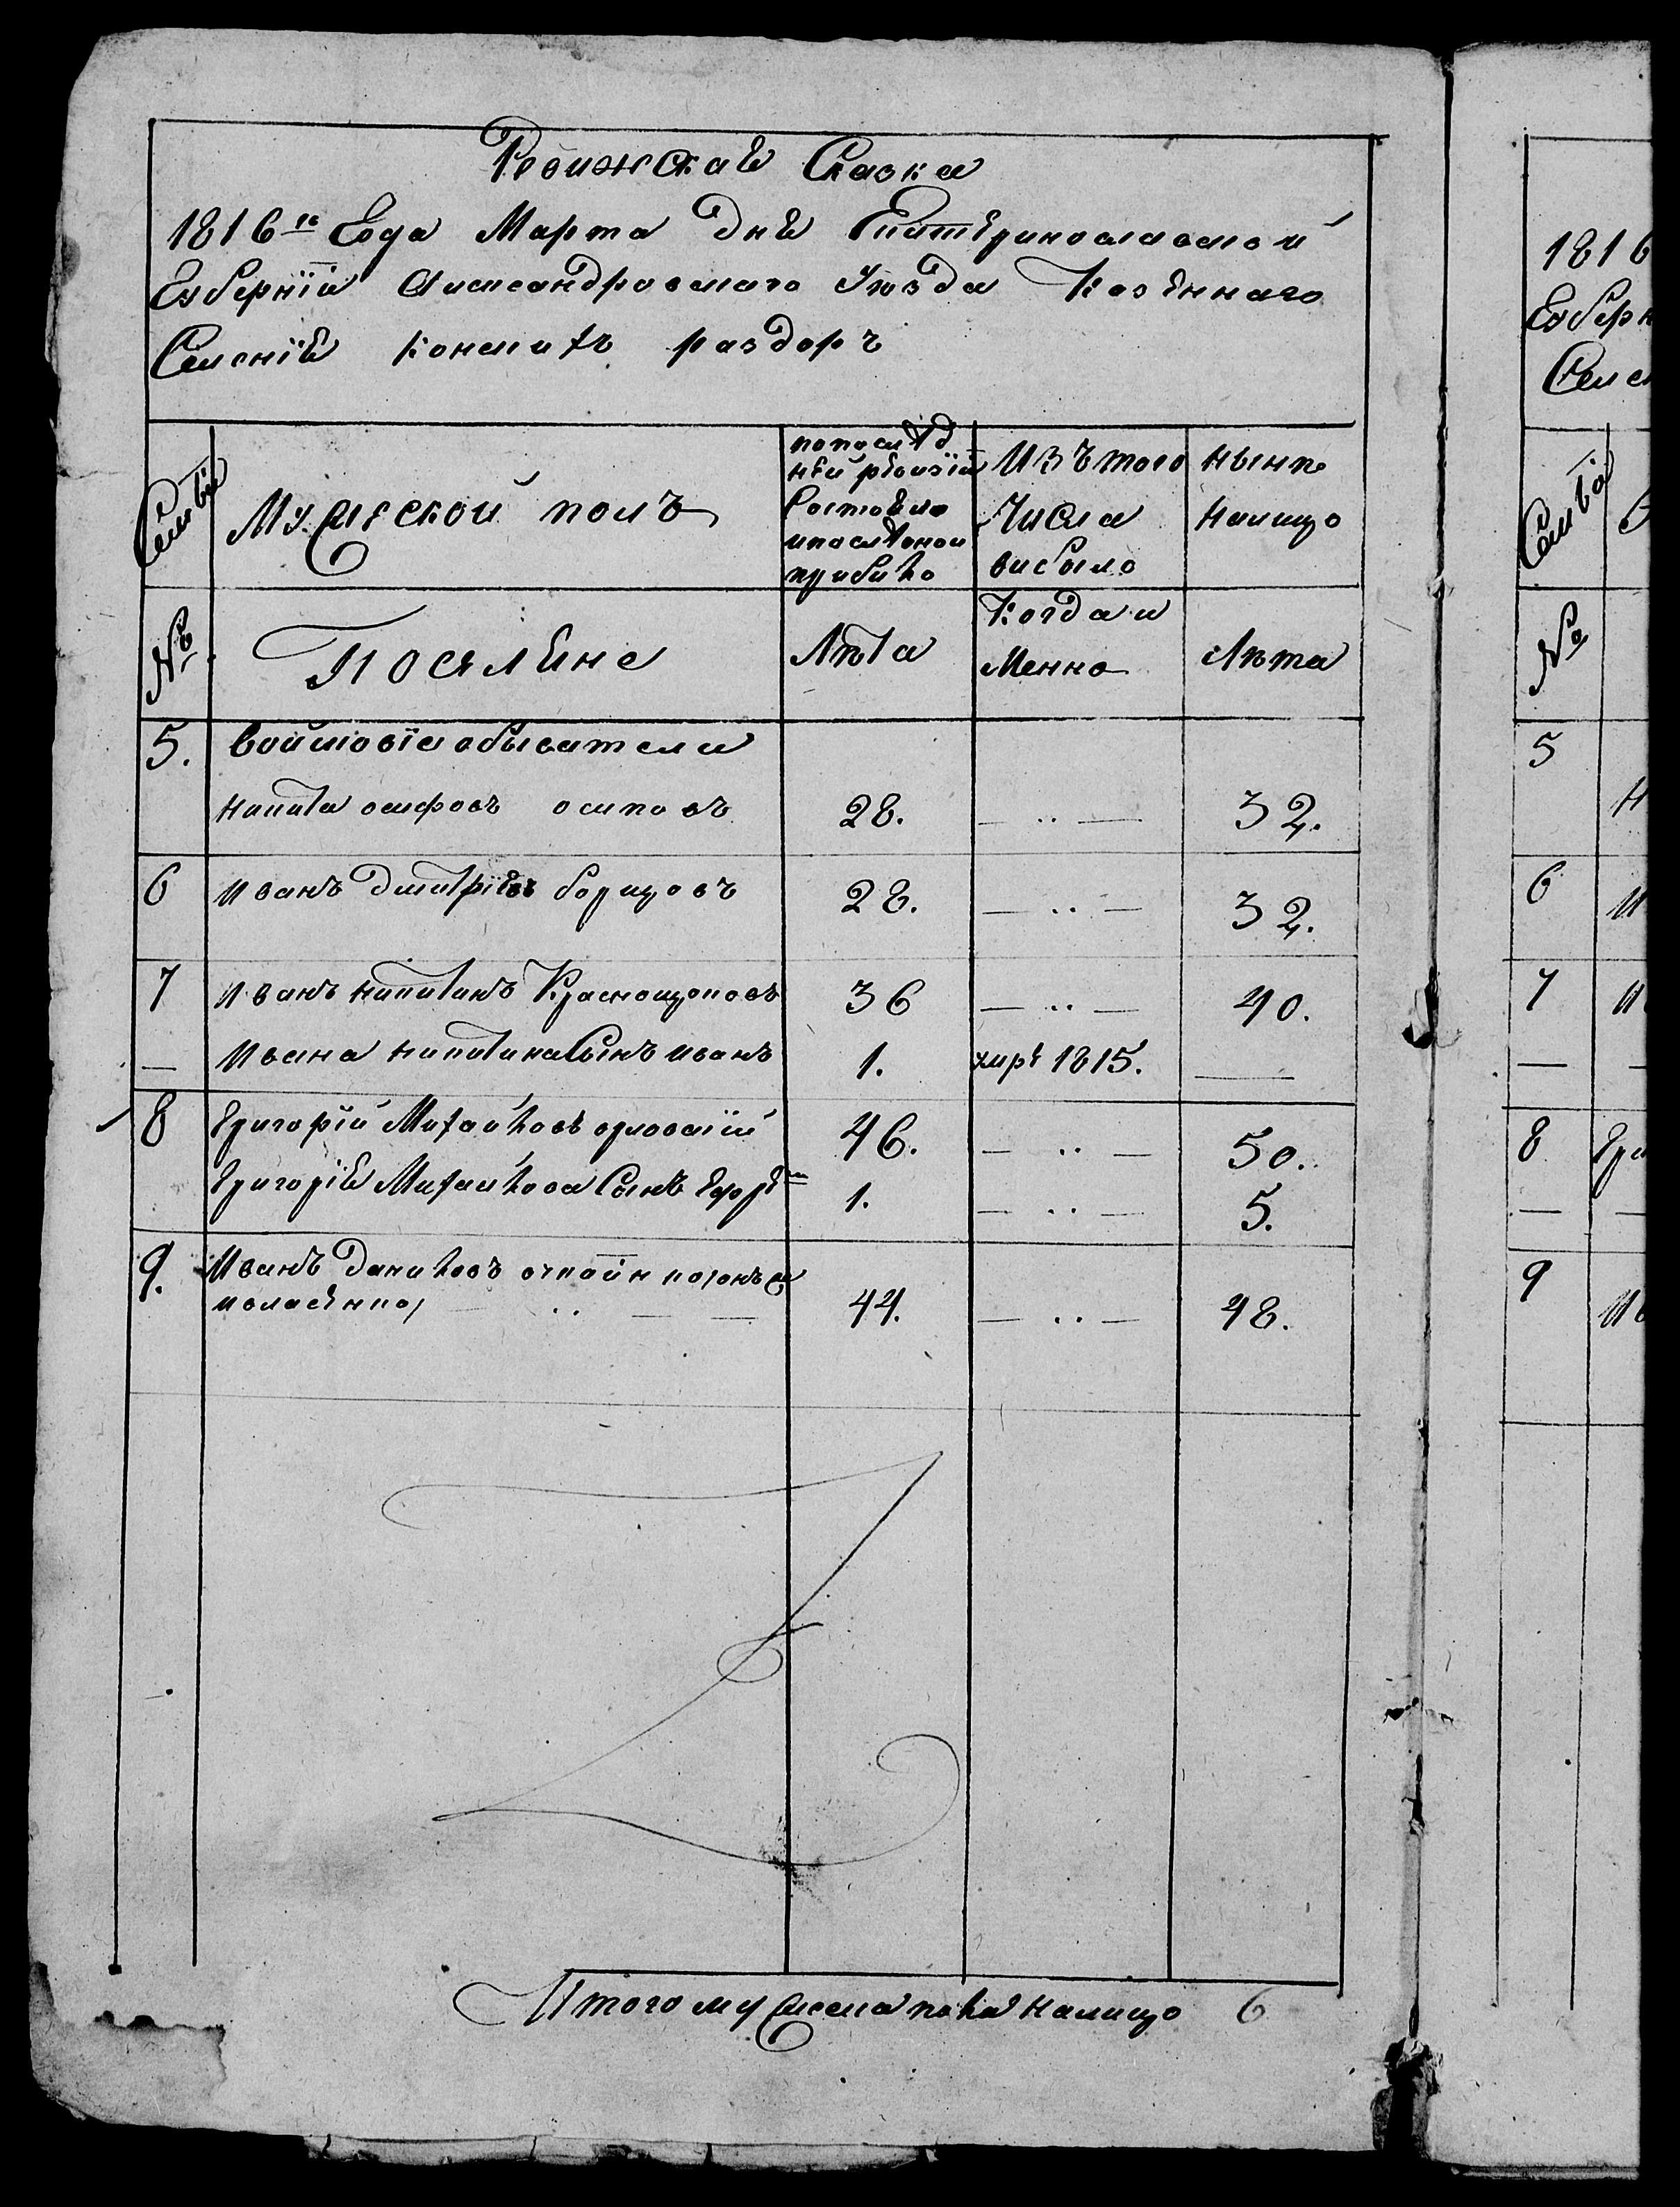 Ревижская Сказка
1816го Года Марта дня Екатеринославской
Губернїи Александровскаго Уезда Казеннаго
Селенїя конскихъ раздоръ
Семьи
Мужеской полъ
по послѣд
ней ревизїи
Состояло
и после оной
прибыло
Изъ того
Числа
выбыло
нынѣ
налицо
№
Поселяне
Лѣта
Когда и
Менно
Лѣта
5. Войсковїе обыватели
никита осифовъ осиповъ 28. — .. — 32.
6 иванъ дмитрїевъ борщовъ 28. — .. — 32.
7 иванъ никитинъ Краснощоковъ 36 — .. — 40.
— ивана никитина Сынъ иванъ 1. умре 1815. —
8 Григорїй Михайловъ орловскїй 46. — .. — 50.
Григорїя Михайлова Сынъ 1. — .. — 5.
9. Иванъ Даниловъ
44. — .. — 48.
Итого мужеска пола налицо 6
1816
Губерн
Селен
Семьи
№
5
6
7
—
8 Гри
—
9